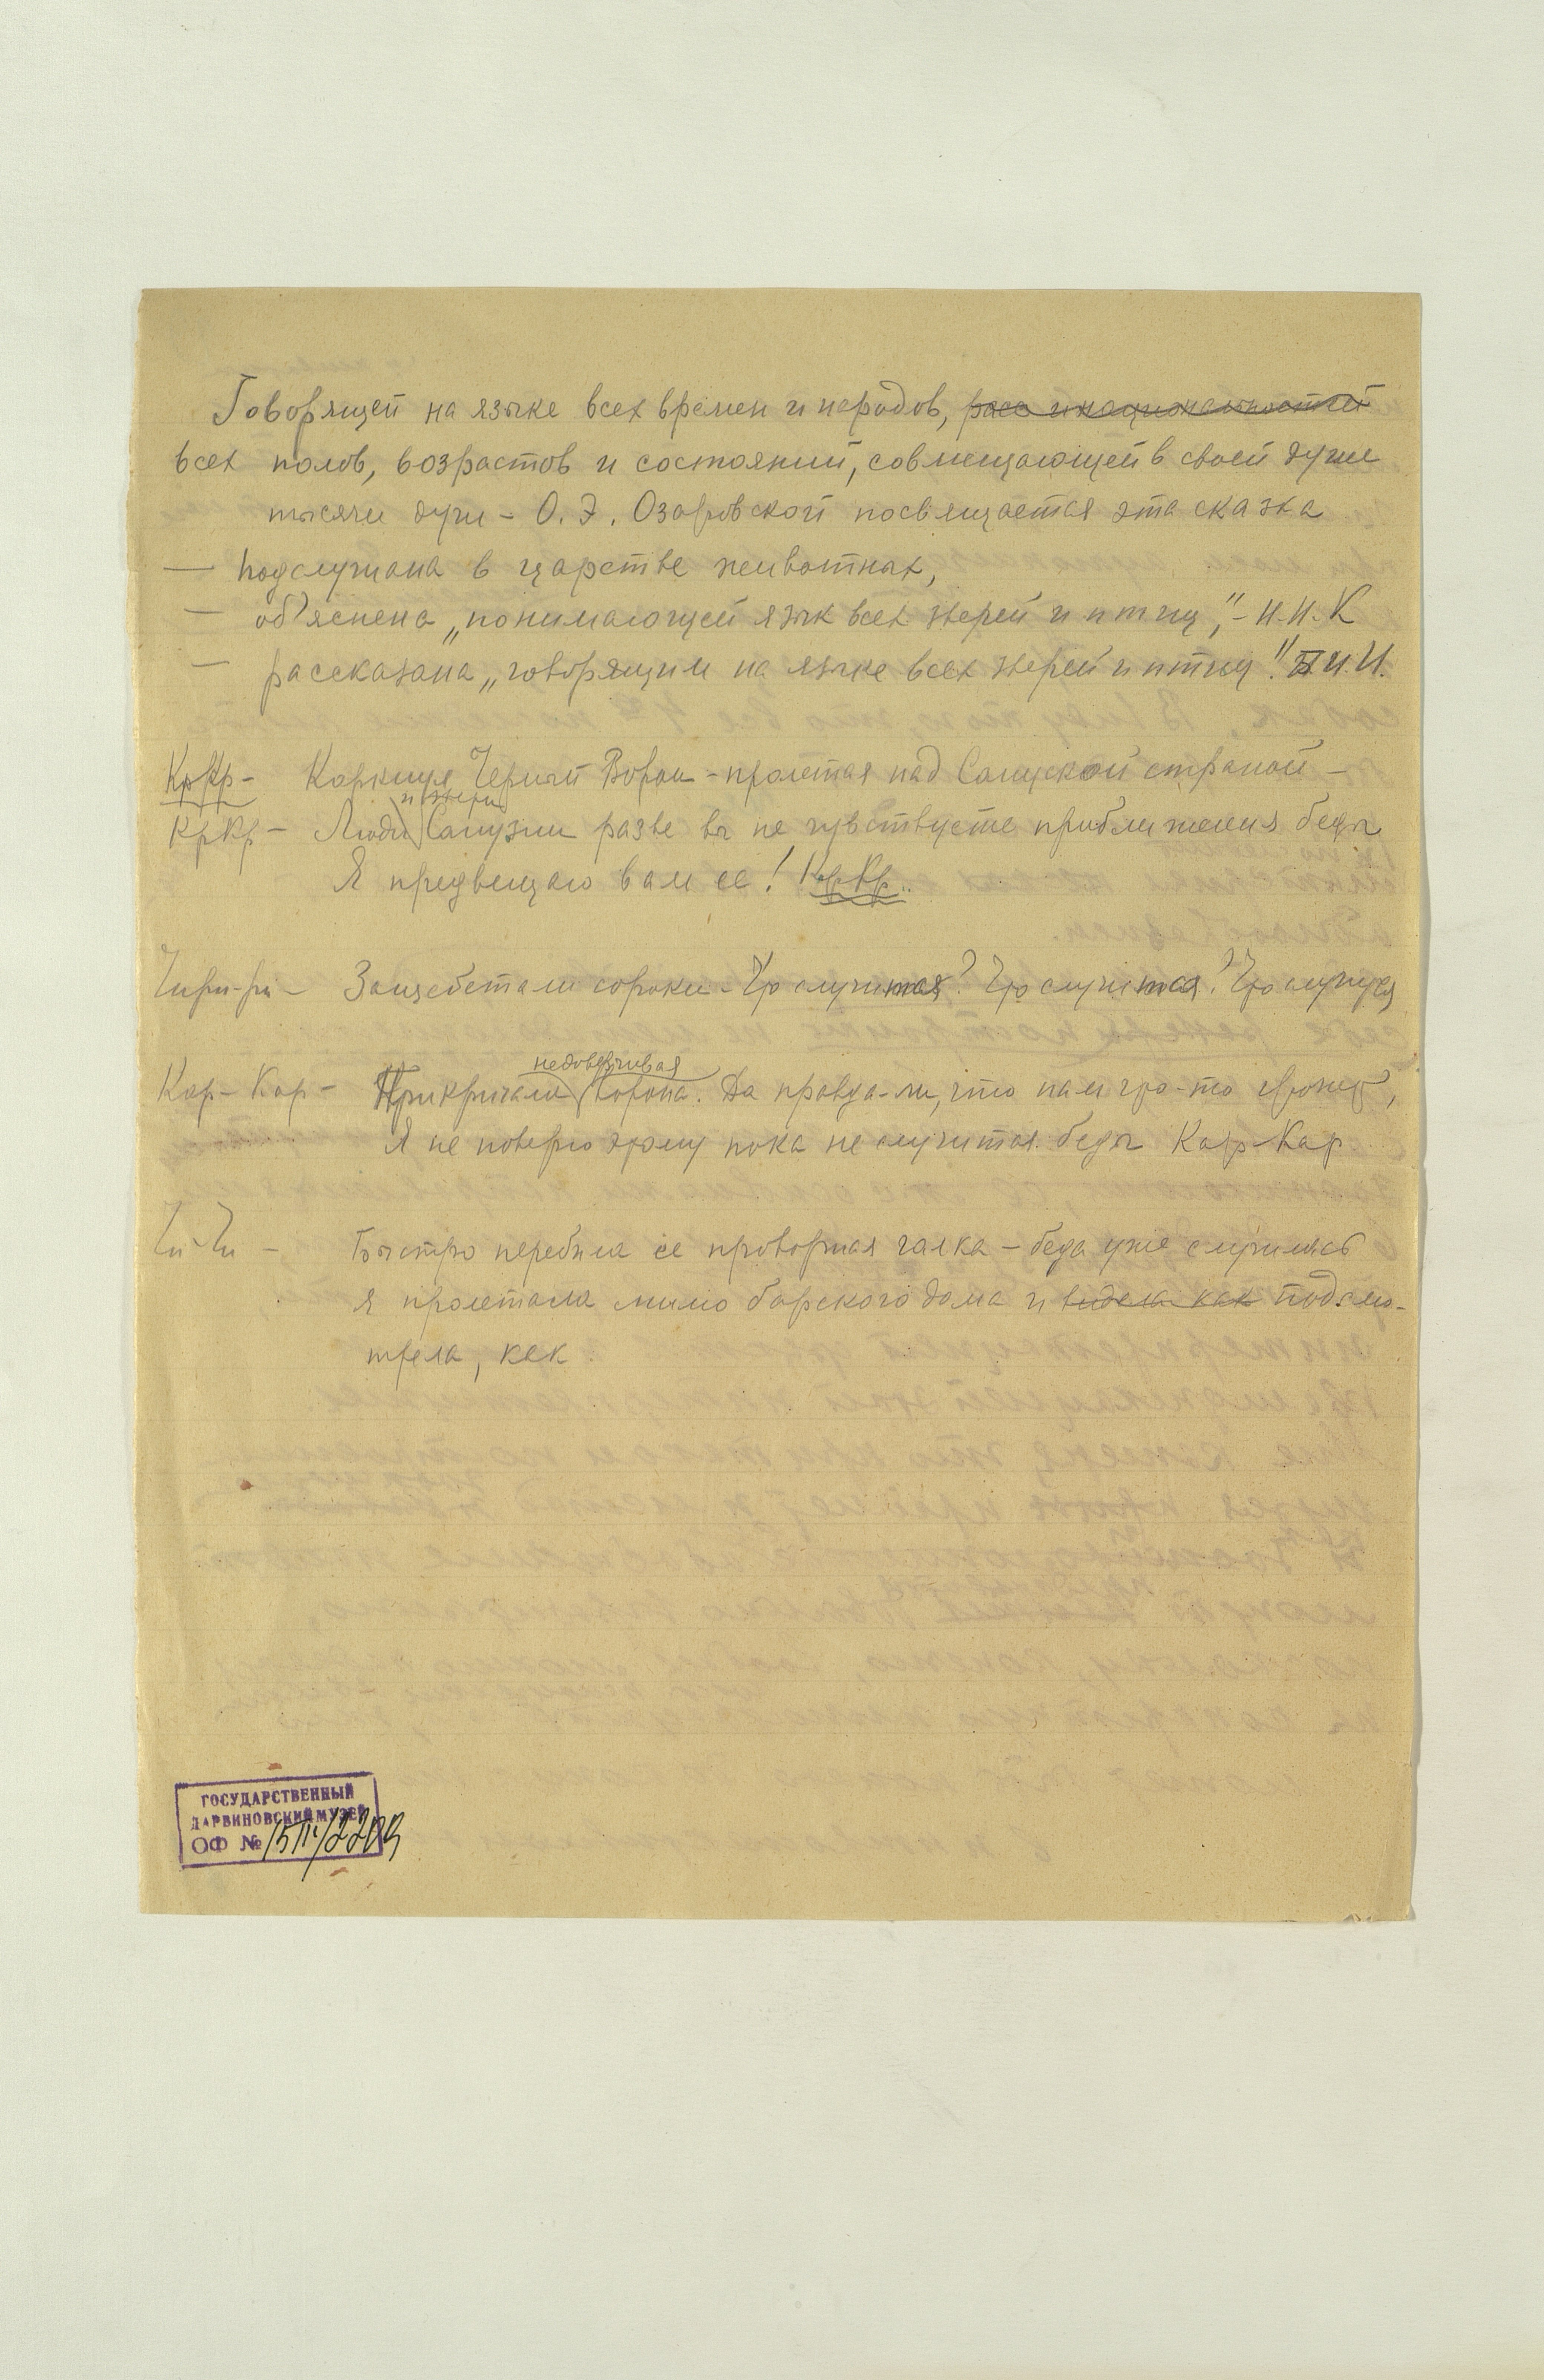 Говорящей на языке всех времен и народов, расс и национальностей
всех полов, возрастов и состояний, совмещающей в своей душе
тысячи душ – О. Э. Озаровской посвящается эта сказка
— подслушана в царстве животных,
— об'яснена „понимающей язык всех зверей и птиц", – Н.Н.К
— рассказана „говорящим на языке всех зверей и птиц".
КрКр – Каркнул Черный Ворон – пролетая над Сапузской страной –
и звери
КрКр – Люди Сапузии разве вы не чувствуете приближения беды
Я предвещаю вам ее! КрКр..
Чири-ри – Защебетали сороки – Что случится? Что случится? Что случится
недоверчивая
Кар – Кар – Прикричала ворона. Да правда-ли, что нам что-то грозит,
Я не поверю этому пока не случится беды Кар-Кар
Чи-Чи – Быстро перебила ее проворная галка – беда уже случилась
я пролетала мимо барского дома и видела как подсмо-
трела, как
ГОСУДАРСТВЕННЫЙ
ДАРВИНОВСКИЙ МУЗЕЙ
ОФ №